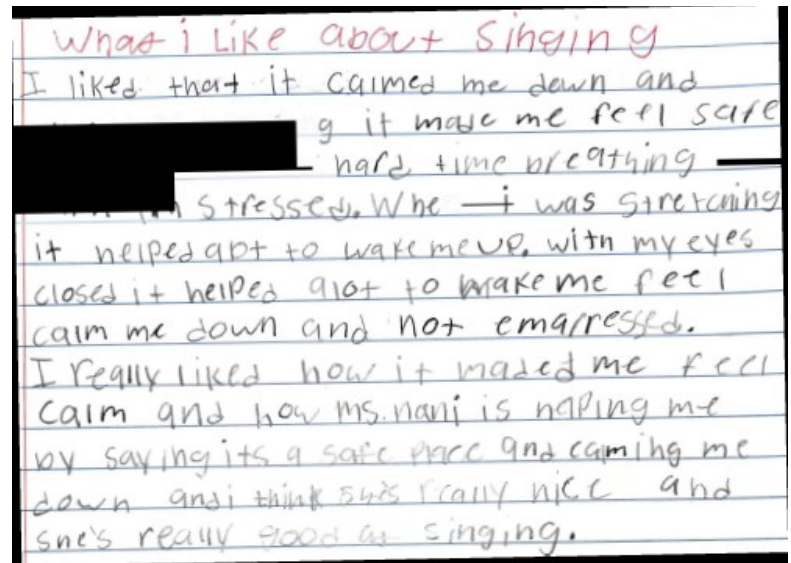 What i Like about Singing
I liked that it calmed me down and
g it made me feel safe
hard time breathing
stressed. Whe i was stretching
it helped alot to wake me up. with my eyes
closed it helped alot to make me feel
calm me down and not emarressed.
I really liked how it maded me feel
calm and how ms. nani is helping me
by saying its a safe place and caming me
down and i think she's really nice and
she's really good at singing.